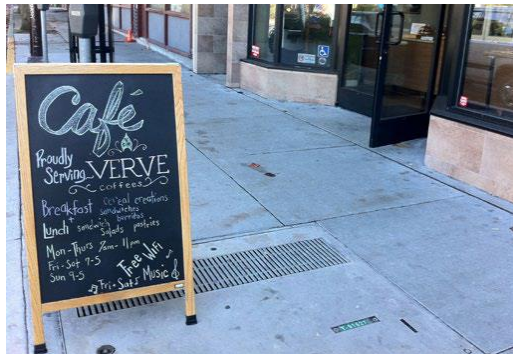 Café
Proudly
Serving VERVE
coffees
Breakfast cereal creations
sandwiches
Lunch + sandwich burritos
Salads pastries
Mon-Thurs 7am-11pm
Fri-Sat 7-5
Sun 9-5
Free WiFi
Fri-Sats Music